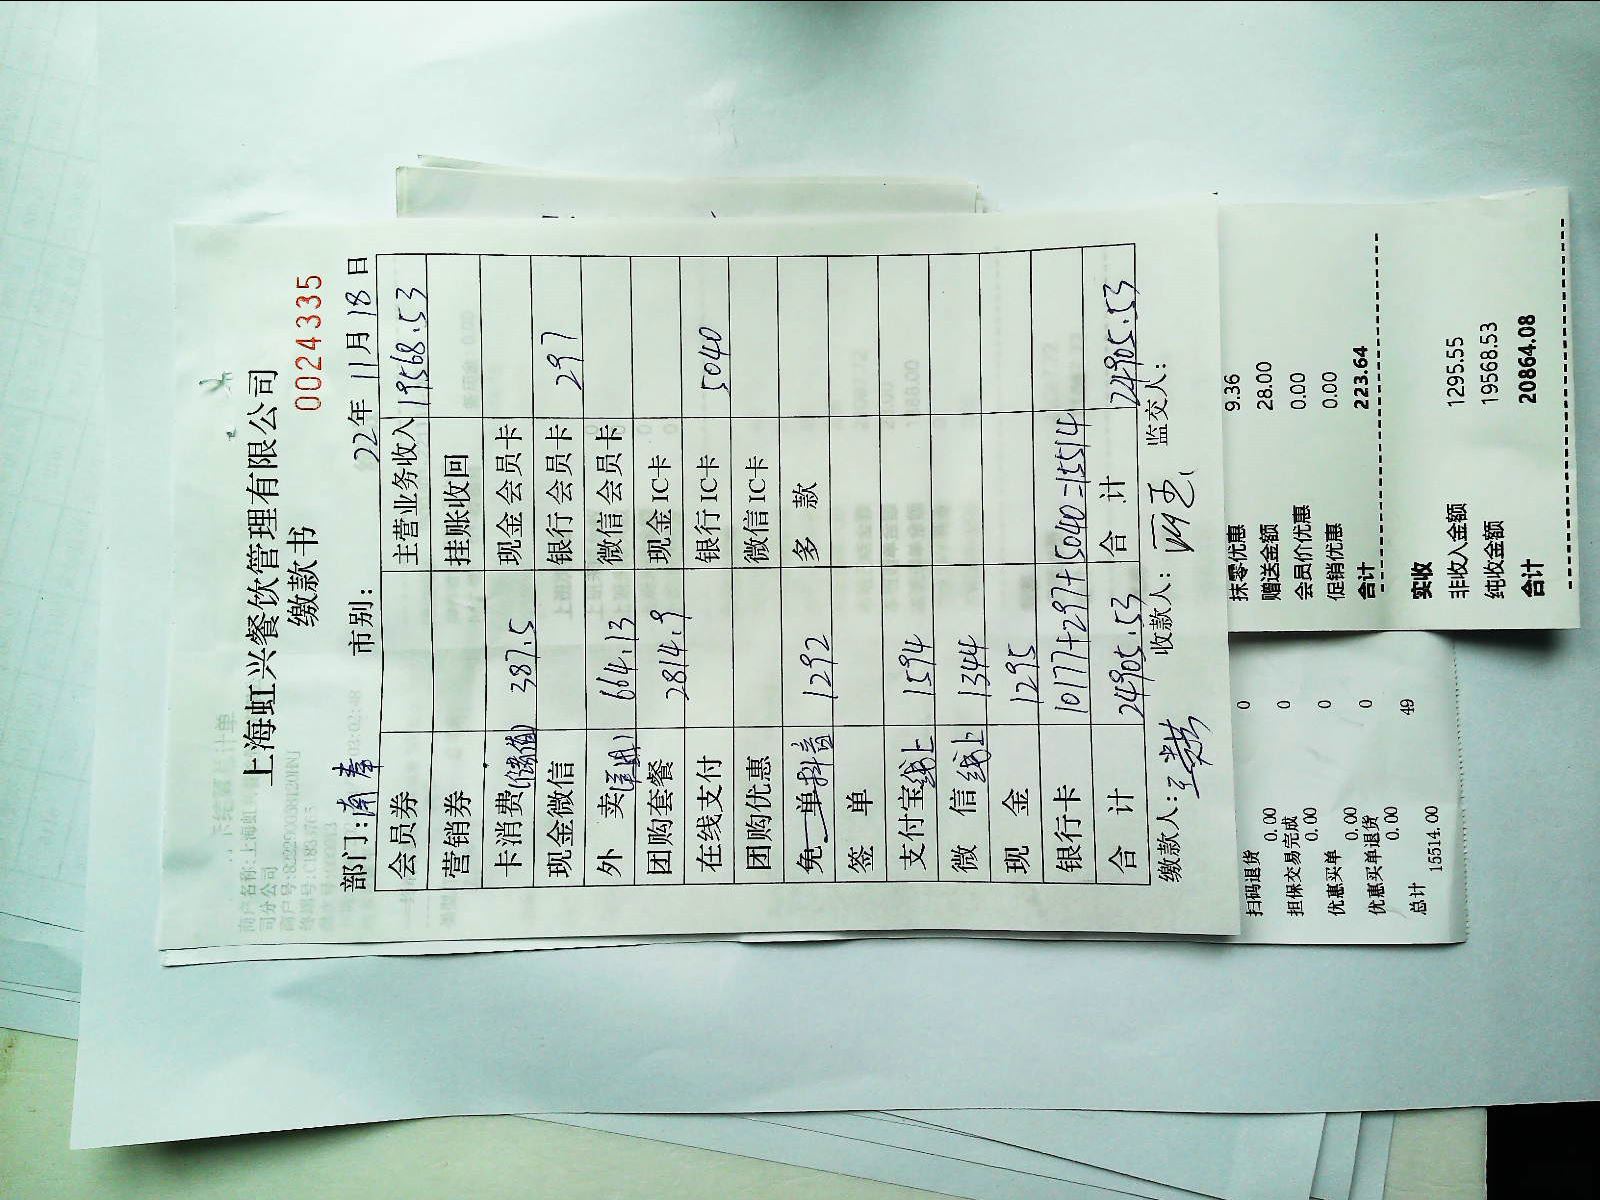 上海虹兴餐饮管理有限公司
缴款书
0024335
部门:南奉 市别: 22年 11月 18日
会员券 主营业务收入 19568.53
营销券 挂账收回
卡消费(储值) 387.5 现金会员卡
现金微信 银行会员卡 297
外 卖(美团) 664.13 微信会员卡
团购套餐 2814.9 现金IC卡
在线支付 银行IC卡 5040
团购优惠 微信IC卡
免 单抖音 1292 多 款
签 单
支付宝线上 1594
微 信线上 1344
现 金 1295
银行卡 10177+297+5040=15514
合 计 24905.53 合 计 24905.53
缴款人: 收款人: 监交人:
抹零优惠 9.36
赠送金额 28.00
会员价优惠 0.00
促销优惠 0.00
合计 223.64
实收
非收入金额 1295.55
纯收金额 19568.53
合计 20864.08
扫码退货 0
0.00
担保交易完成 0
0.00
优惠买单 0
0.00
优惠买单退货 0
0.00
总计 49
15514.00